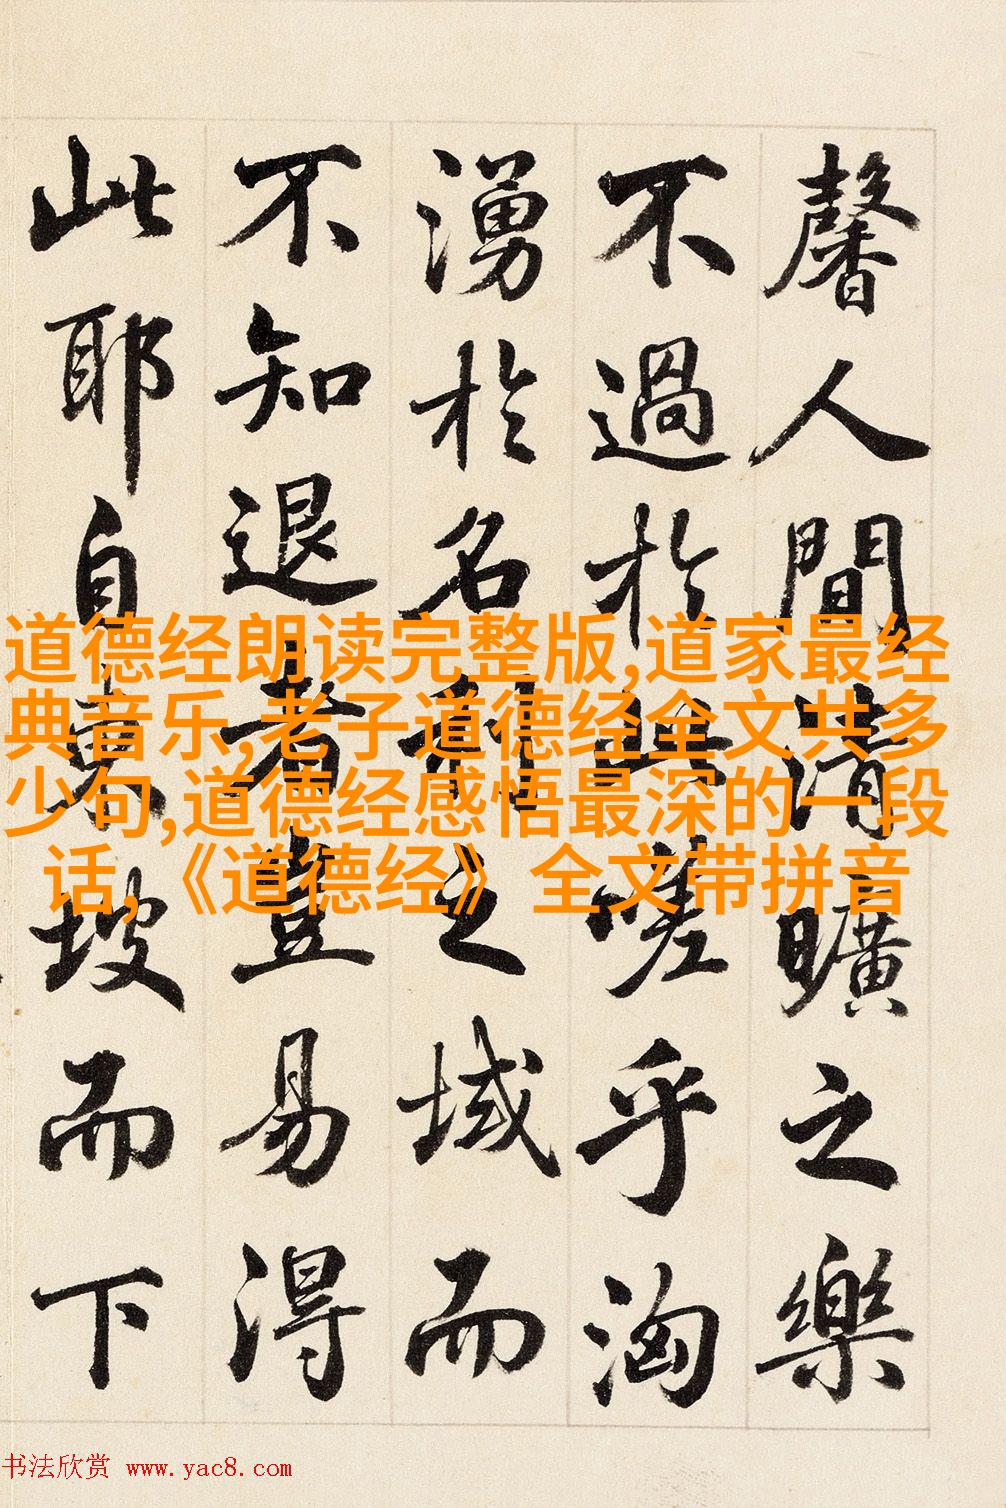 馨人間清曠之樂
不過於此嗟乎洶
湧於名利之域而
不知退者豈易得
此耶自東坡而下
道德经朗读完整版,道家最经
典音乐,老子道德经全文共多
少句,道德经感悟最深的一段
话,《道德经》全文带拼音
书法欣赏 www.yac8.com